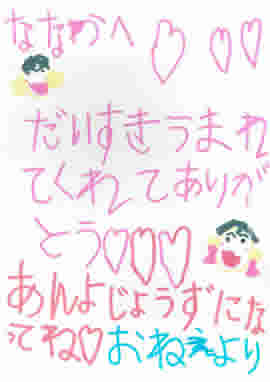 ななかへ ♡ ♡♡
だいすきうまれ
てくれてありが
とう♡♡♡
あんよじょうずにな
ってね♡おねぇより